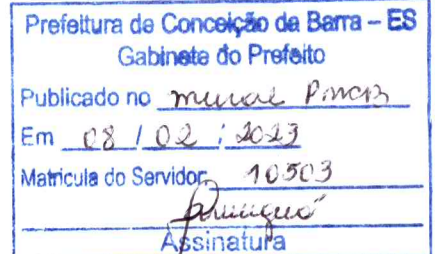 Prefeitura de Conceição da Barra – ES
Gabinete do Prefeito
Publicado no mural PMCB
Em 08 / 02 / 2023
Matricula do Servidor 10503
Assinatura